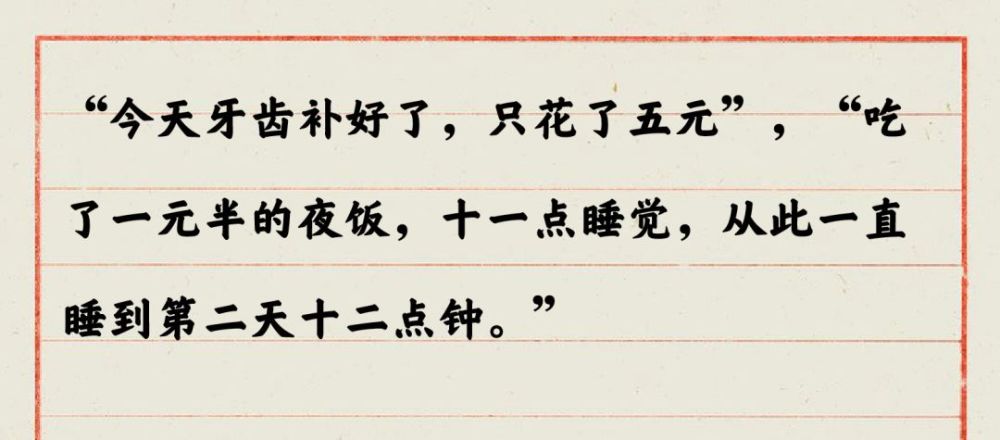 “今天牙齿补好了，只花了五元”，“吃
了一元半的夜饭，十一点睡觉，从此一直
睡到第二天十二点钟。”